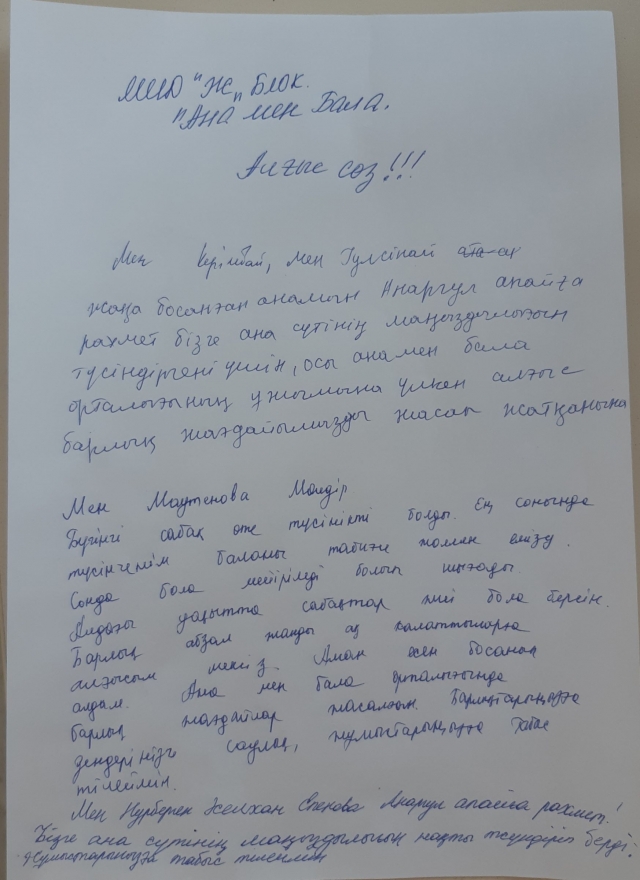 "Ж" Блок.
"Ана" мен Бала.
Алғыс сөз!!!
Мен Керімбай, мен Гулсінай
жаңа босанған анамын Анаргул апайға
рахмет бізге ана сүтінің маңыздылығын
түсіндіргені үшін, осы ана мен бала
орталығының ұжымына үлкен алғыс
барлық жағдайымызды жасап жатқанына
Мен Маутенова Мөлдір
Бүгінгі сабақ өте түсінікті болды. Ең соңында
түсінгенім баланы табиғи жолмен емізу.
Сонда бала мейірімді болып шығады.
Алдағы уақытта сабақтар көп бола берсін.
Барлық абзал жанды ақ халаттыларға
алғысым шексіз. Аман есен босанып
алдам. Ана мен бала орталығында
барлық жағдайлар жасалған. Барлықтарыңызға
дендеріңізге саулық, жұмыстарыңызға табыс
тілеймін.
Мен Нурберген Анаргул апайға рахмет!
Бізге ана сүтінің маңыздылығын нақты түсіндіріп берді.
Жұмыстарыңызға табыс тілеймін